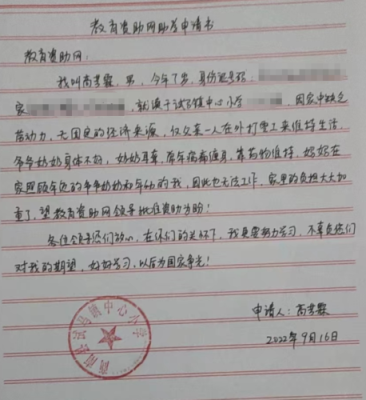 教育资助网助学申请书
教育资助网:
我叫高孝霖,男,今年7岁,身份证号码,
家 就读于试马镇中心小学 因家中缺乏
劳动力,无固定的经济来源,仅父亲一人在外打零工来维持生活,
爷爷奶奶身体不好,奶奶耳聋,常年疾病缠身,靠药物维持,妈妈在
家照顾年迈的爷爷奶奶和年幼的我,因此也无法工作,家里的负担大大加
重了,望教育资助网领导批准资助为盼!
各位领导您们放心,在你们的关怀下,我更要努力学习,不辜负您们
对我的期望,好好学习,以后为国家争光!
申请人:高孝霖
2022年9月16日
商南县试马镇中心小学